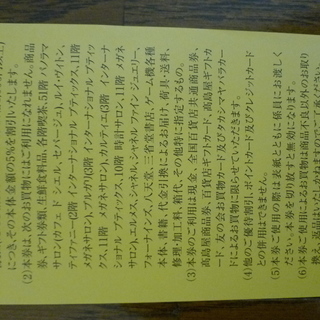 につき、その本体金額の5%を割引いたします。
(2)本券は、次のお買物にはご利用になれません。商品
券、ギフト券類、生鮮食料品、各階喫茶、51階 パノラマ
サロン(カフェ ド シエル・セパージュ)、ルイ・ヴィトン、
ティファニー(2階 インターナショナル ブティックス、11階
メガネサロン)、ブルガリ(3階 インターナショナル ブティッ
クス、11階 メガネサロン)、カルティエ(3階 インターナ
ショナル ブティックス、10階 時計サロン、11階 メガネ
サロン)、エルメス、シャネル、シャネル ファイン ジュエリー、
フォーナインズ、八天堂、三省堂書店、ゲーム機各種
本体、書籍、代金引換によるお届け、箱代、送料、
修理・加工料、箱代、その他特に指定するもの。
(3)本券のご使用は現金、全国百貨店共通商品券、
高島屋商品券、百貨店ギフトカード、高島屋ギフトカ
ード、友の会お買物カード及びタカシマヤバラカー
ドによるお買物に限らせていただきます。
(4)他のご優待割引、ポイントカード及びクレジットカード
との併用はできません。
(5)本券ご使用の際は表紙とともに係員にお渡しく
ださい。本券を切り放すと無効になります。
(6)本券ご使用によるお買物は商品不良以外のお取り
換え、ご返品はいたしかねますのでご了承ください。